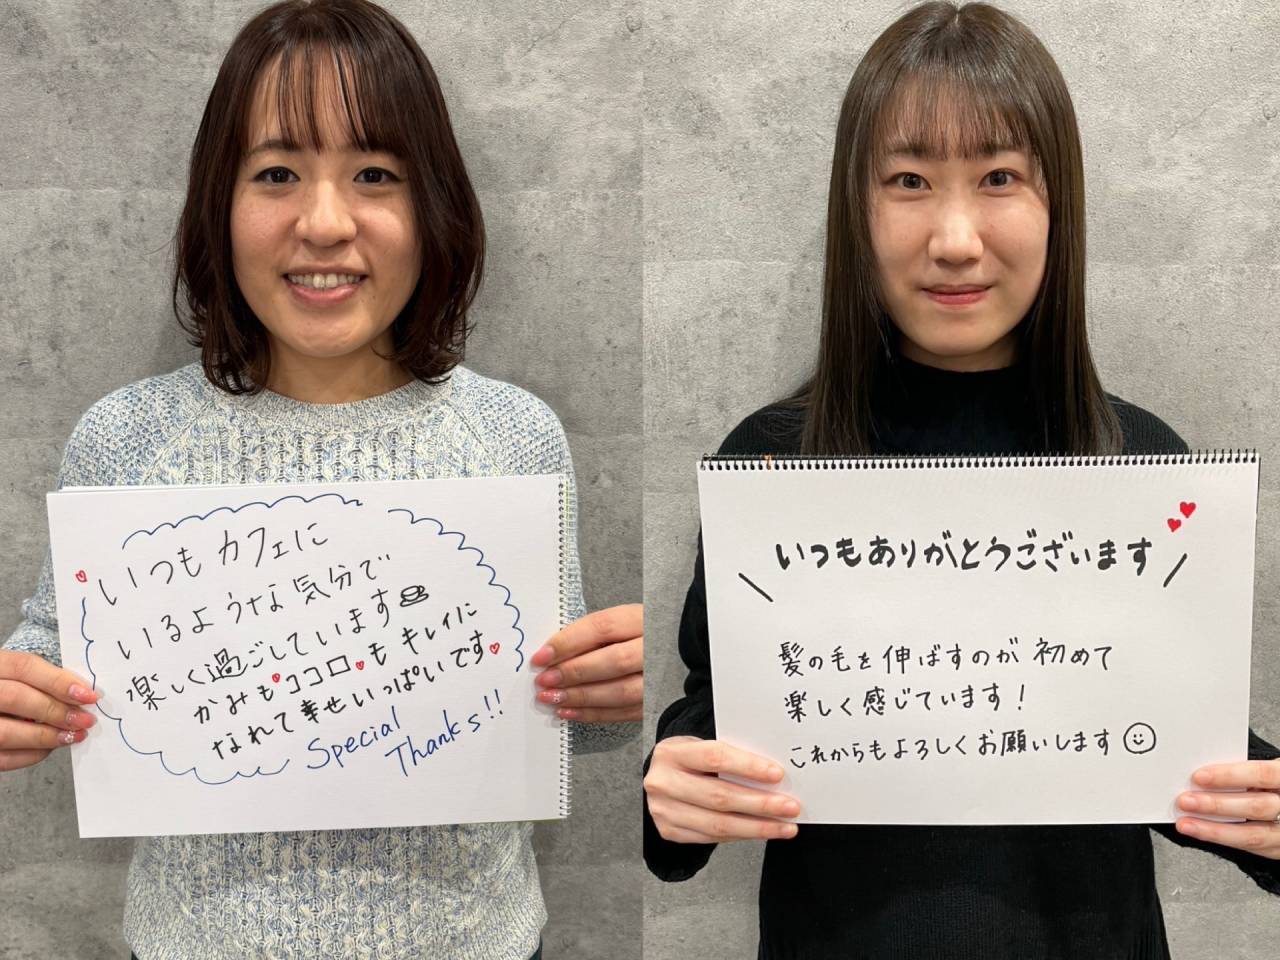 いつもカフェに
いるような気分で
楽しく過ごしています
かみもココロもキレイに
なれて幸せいっぱいです
Special
Thanks!!
いつもありがとうございます
髪の毛を伸ばすのが初めて
楽しく感じています!
これからもよろしくお願いします